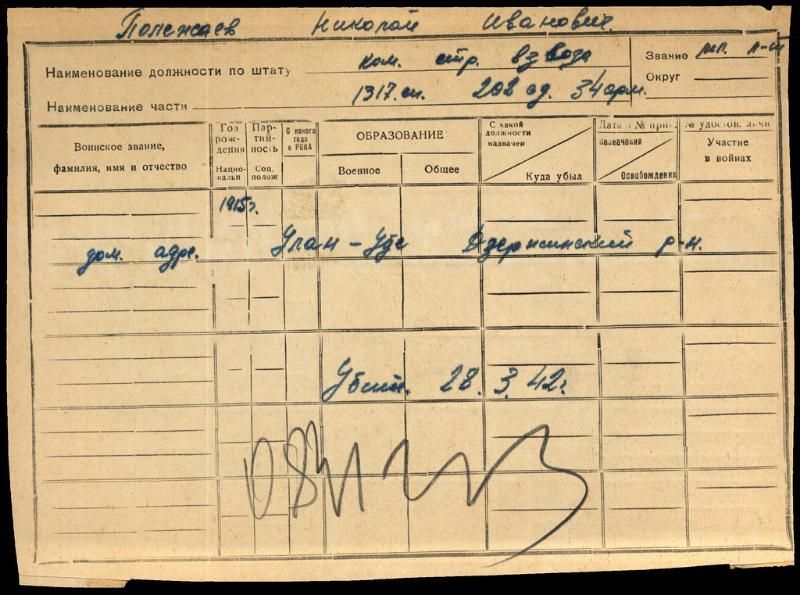 Полежаев Николай Иванович.
Наименование должности по штату ком. стр. взвода
Звание мл. л-т
Наименование части 1317 сп. 202 сд. 34 арм.
Округ
Воинское звание, фамилия, имя и отчество
Год рождения
Националь
Партийность
Соц. положен
С какого года в РККА
ОБРАЗОВАНИЕ
Военное Общее
С какой должности назначен
Куда убыл
Дата и № прик.
назначения
Освобождения
№ удостов. личн
Участие в войнах
1915 г.
дом. адре. Улан-Удэ Дзержинский р-н.
Убит. 28.3.42 г.